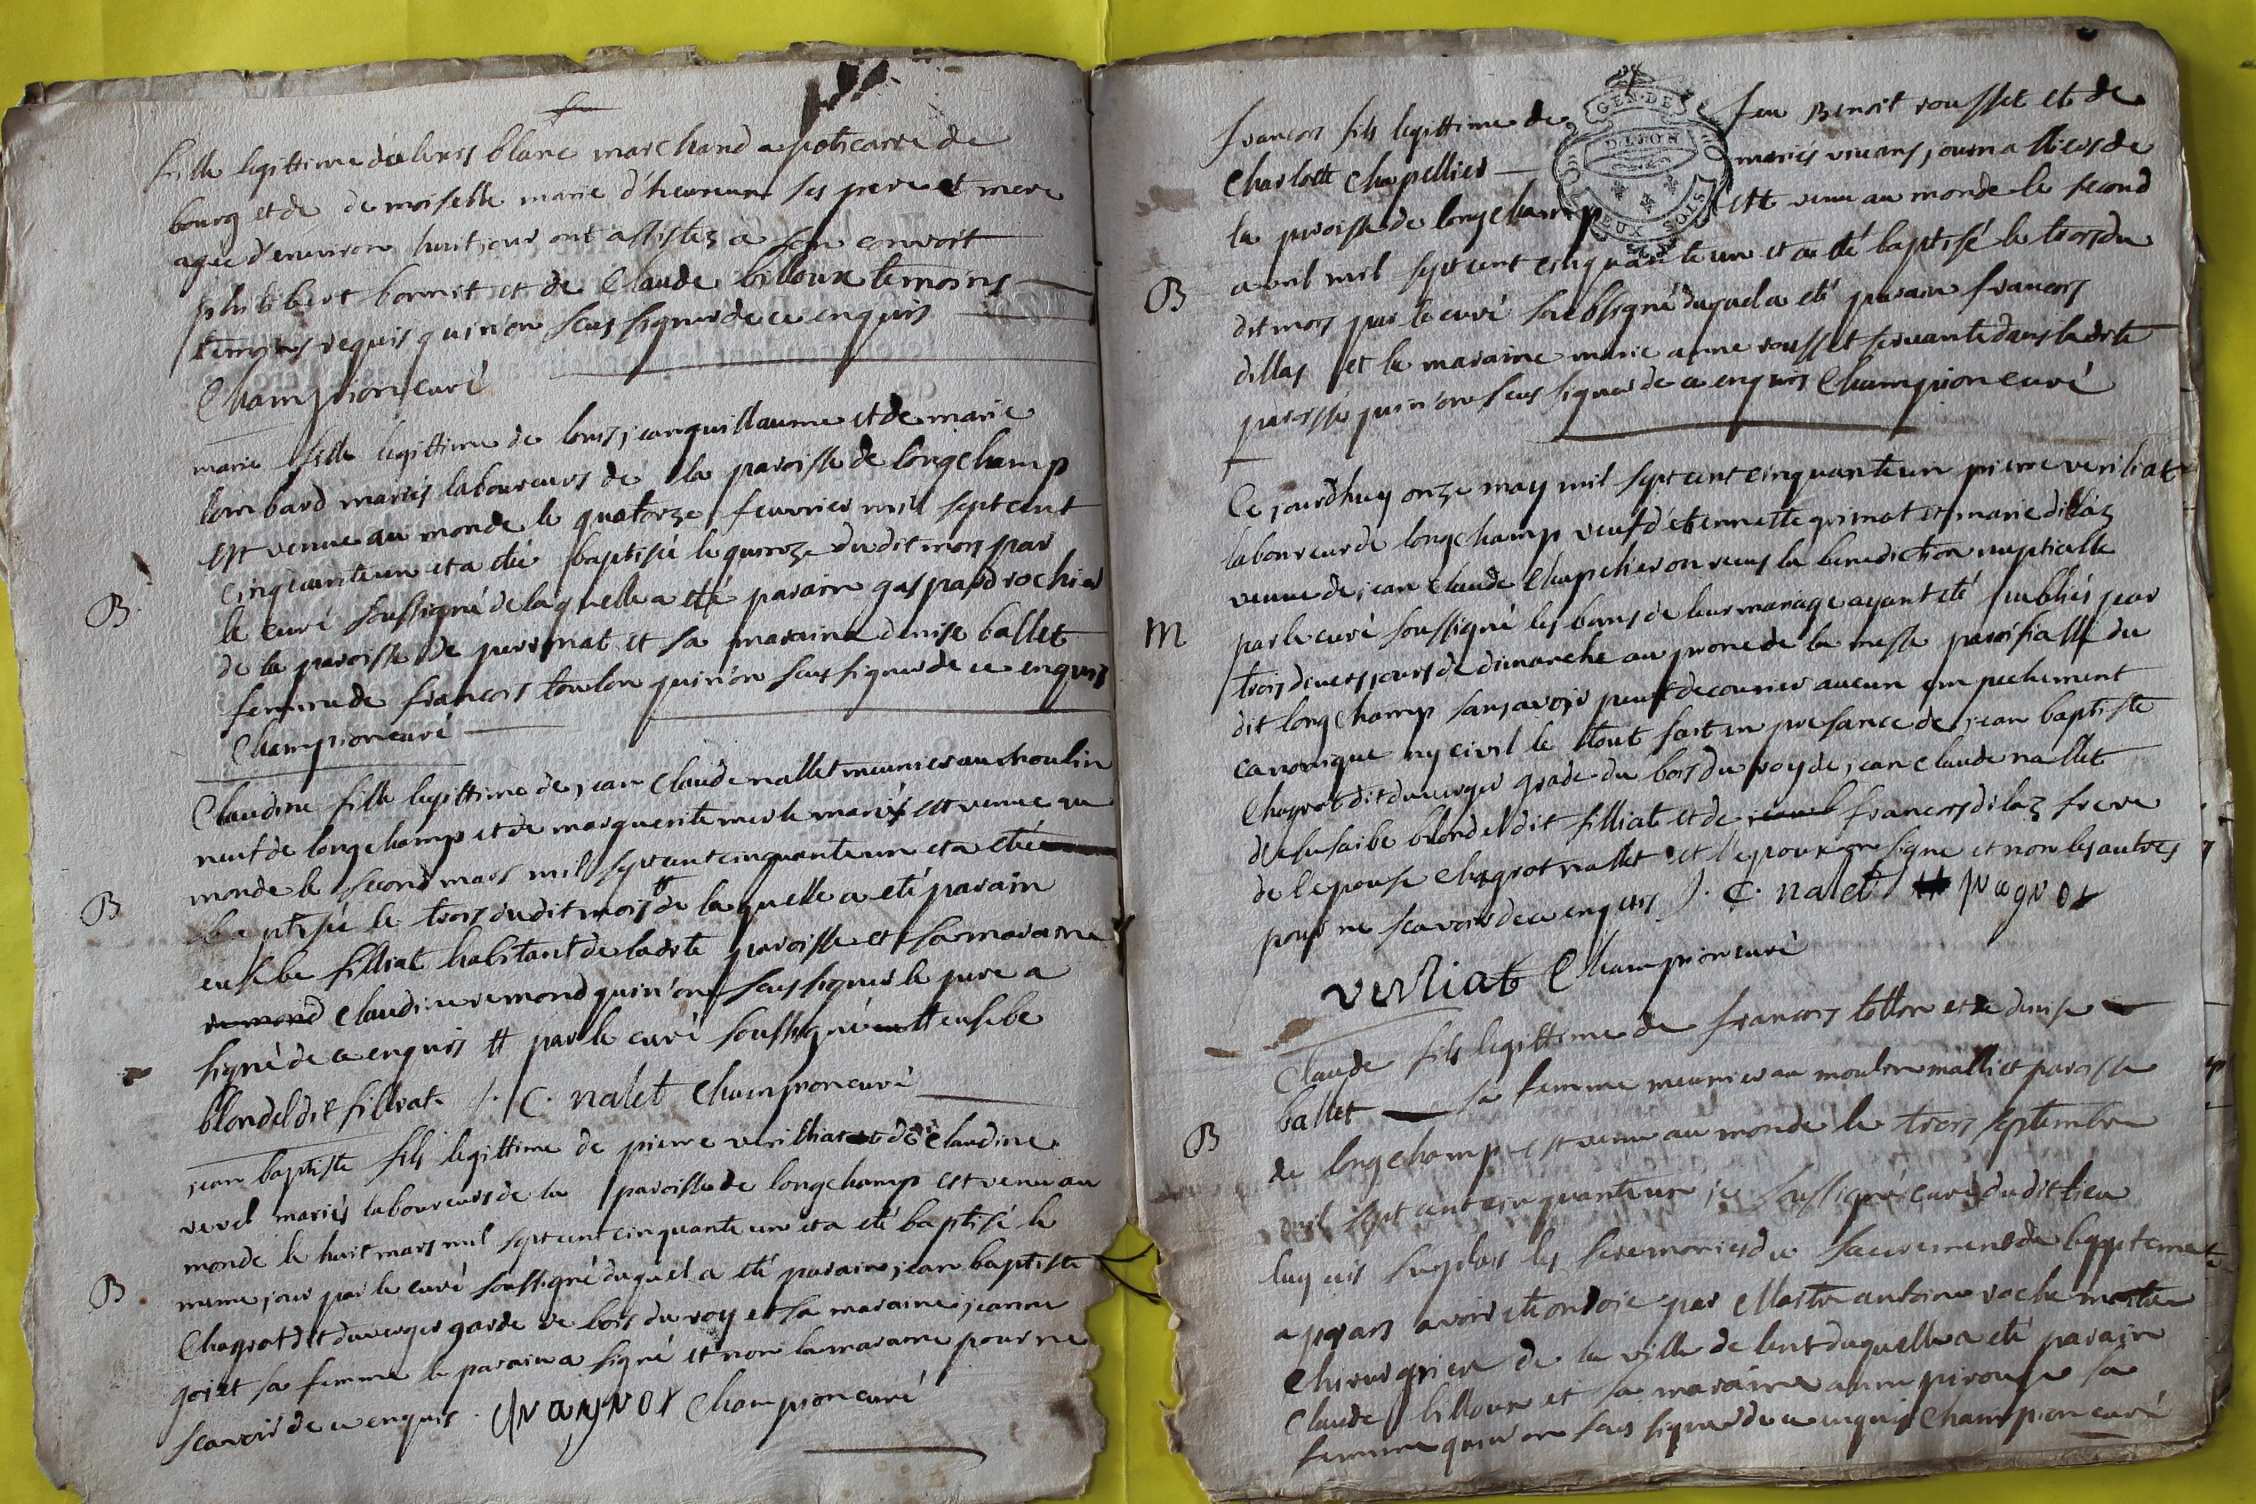 fille legittime de louis blanc marchand apoticaire de
bourg et de demoiselle marie d'heureux ses pere et mere
agée d'environ huit jour ont assistez a son convoit
philibert bonnet et de Claude billoux temoins
temoins requis qui n'on sceus signer de ce enquis
Champion curé
marie fille legittime de louis jeanguillaume et de marie
lombard mariés laboureurs de la paroisse de longchamp
est venue au monde le quatorze feuvrier mil sept cent
cinquante un et a été baptisée le quinze dudit mois par
B
le curé soussigné de laquelle a été parain gaspard rochier
de la paroisse de peronnat et sa maraine denise ballet
femme de francois toulon qui n'on sceus signer de ce enquis
Champion curé
Claudine fille legittime de jean Claude nallet meunier au moulin
neuf de longchamp et de marguerite merle mariés est venue au
monde le second mars mil sept cent cinquante un et a été
B
baptisée le trois dudit mois # de laquelle a été parain
eusebe filliat habitant de ladite paroisse et sa maraine
remond Claudine remond qui n'on sceus signer le pere a
signé de ce enquis # par le curé soussigné eusebe
blondel dit filliat J. C. nalet Champion curé
jean baptiste fils legittime de pierre verilliat et de Claudine
revel mariés laboureurs de la paroisse de longchamp est venu au
monde le huit mars mil sept cent cinquante un et a été baptisé le
B
meme jour par le curé soussigné duquel a été parain jean baptiste
Chagrot dit duverger garde de bois du roy et sa maraine jeanne
gojet sa femme le parain a signé et non la maraine pour ne
scavoir de ce enquis. Champion curé
GEN. DE
D LION
DEUX SOLS
francois fils legittime de feu Benoit rousset et de
Charlotte Chapellier mariés vivans journalliers de
la paroisse de longchamp est venu au monde le second
avril mil sept cent cinquante un et a été baptisé le trois du
B
dit mois par le curé soussigné duquel a été parain francois
dillas et la maraine marie anne rousset servante dans ladite
paroisse qui n'on sceus signer de ce enquis Champion curé
Ce jourdhuy onze may mil sept cent cinquante un pierre veriliat
laboureur de longchamp veuf d'etiennette grimat et marie dilaz
veuve de jean Claude Chapelier on receus la benediction nuptialle
m
par le curé soussigné les bans de leur mariage ayant été publiés par
trois divers jours de dimanche au prone de la messe paroissialle du
dit longchamp sans avoir peut decouvrir aucun empechement
canonique ny civil le tout fait en presance de jean baptiste
Chagrot dit duverger grade du bois du roy de jean Claude nallet
de eusaibe blondel dit filliat et de francois dilaz frere
de l'epouse Chagrot nallet et l'epoux on signe et non les autres
pour ne scavoir de ce enquis J. C. nalet
verliat Champion curé
Claude fils legittime de francois tollon et de denise
ballet sa femme meunier au moulin malliet paroisse
B
de longchamp est venu au monde le trois septembre
mil sept cent cinquante un je soussigné curé dudit lieu
luy ais supplois les seremonies du sacrement de bapteme
apprais avoir été ondoié par Maitre antoine roche maitre
chirurgrien de la ville de lent duquelle a été parain
Claude billoux et sa maraine anne pirouse sa
femme qui n'on sceus signer de ce enquis Champion curé